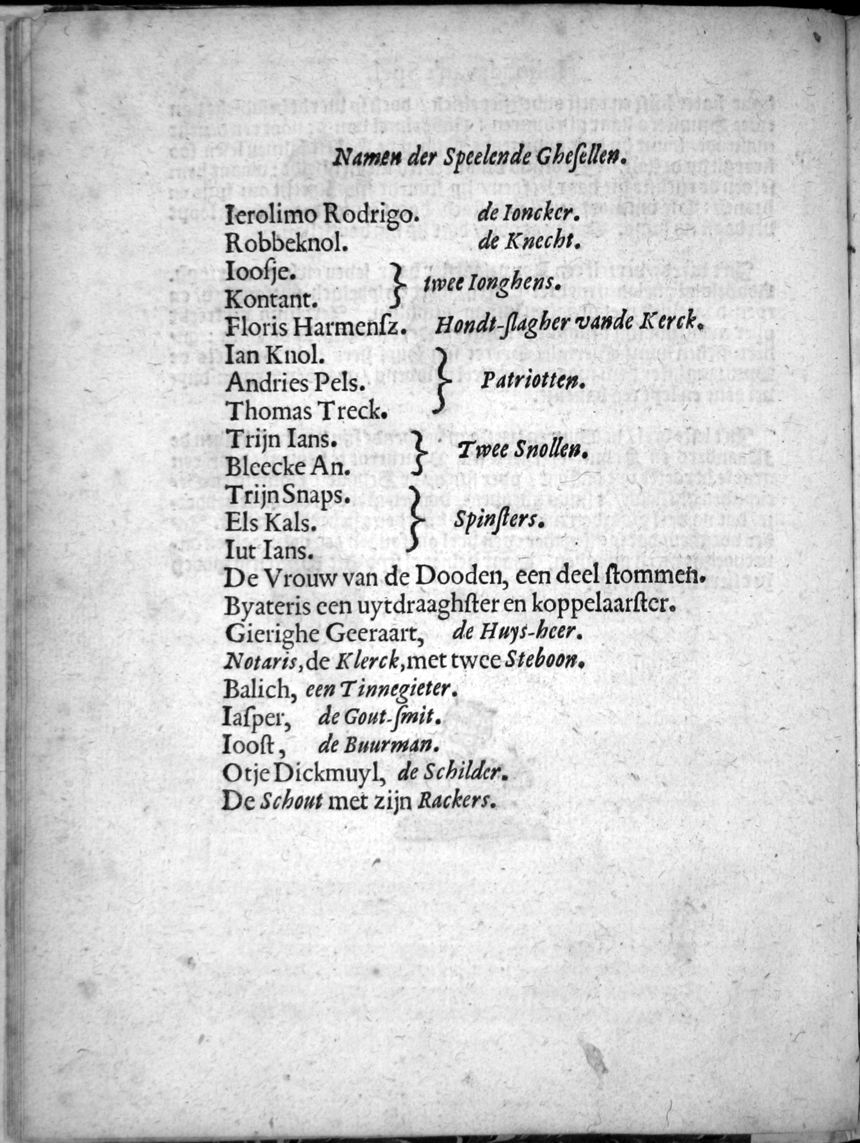 Namen der Speelende Gheſellen.
Ierolimo Rodrigo. de Ioncker.
Robbeknol. de Knecht.
Iooſje.
Kontant. } twee Ionghens.
Floris Harmenſz. Hondt-ſlagher vande Kerck.
Ian Knol.
Andries Pels. } Patriotten.
Thomas Treck.
Trijn Ians.
Bleecke An. } Twee Snollen.
Trijn Snaps.
Els Kals. } Spinſters.
Iut Ians.
De Vrouw van de Dooden, een deel ſtommen.
Byateris een uytdraaghſter en koppelaarſter.
Gierighe Geeraart, de Huys-heer.
Notaris, de Klerck, met twee Steboon.
Balich, een Tinnegieter.
Iaſper, de Gout-ſmit.
Iooſt, de Buurman.
Otje Dickmuyl, de Schilder.
De Schout met zijn Rackers.